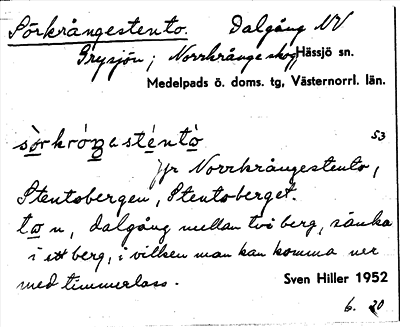 Sörkrångestento. Dalgång NV
Grysjön; Norrkrånge skog Hässjö sn.
Medelpads ö. doms. tg, Västernorrl. län.
53
Jfr Norrkrångestento,
Stentobergen, Stentoberget.
n, dalgång mellan två berg, sänka
i ett berg, i vilken man kan komma ner
med timmerlass.
Sven Hiller 1952
6. 20